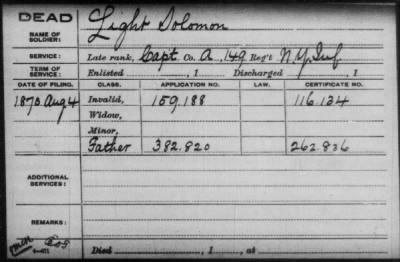 DEAD
NAME OF SOLDIER: Light Solomon
SERVICE: Late rank, Capt. Co. A, 149 Reg't N.Y. Inf
TERM OF SERVICE: Enlisted , 1 Discharged , 1
DATE OF FILING. CLASS. APPLICATION NO. LAW. CERTIFICATE NO.
1870 Aug 4 Invalid, 159.188 116.134
Widow,
Minor,
Father 382.820 262.836
ADDITIONAL SERVICES:
REMARKS:
Died , 1 , at